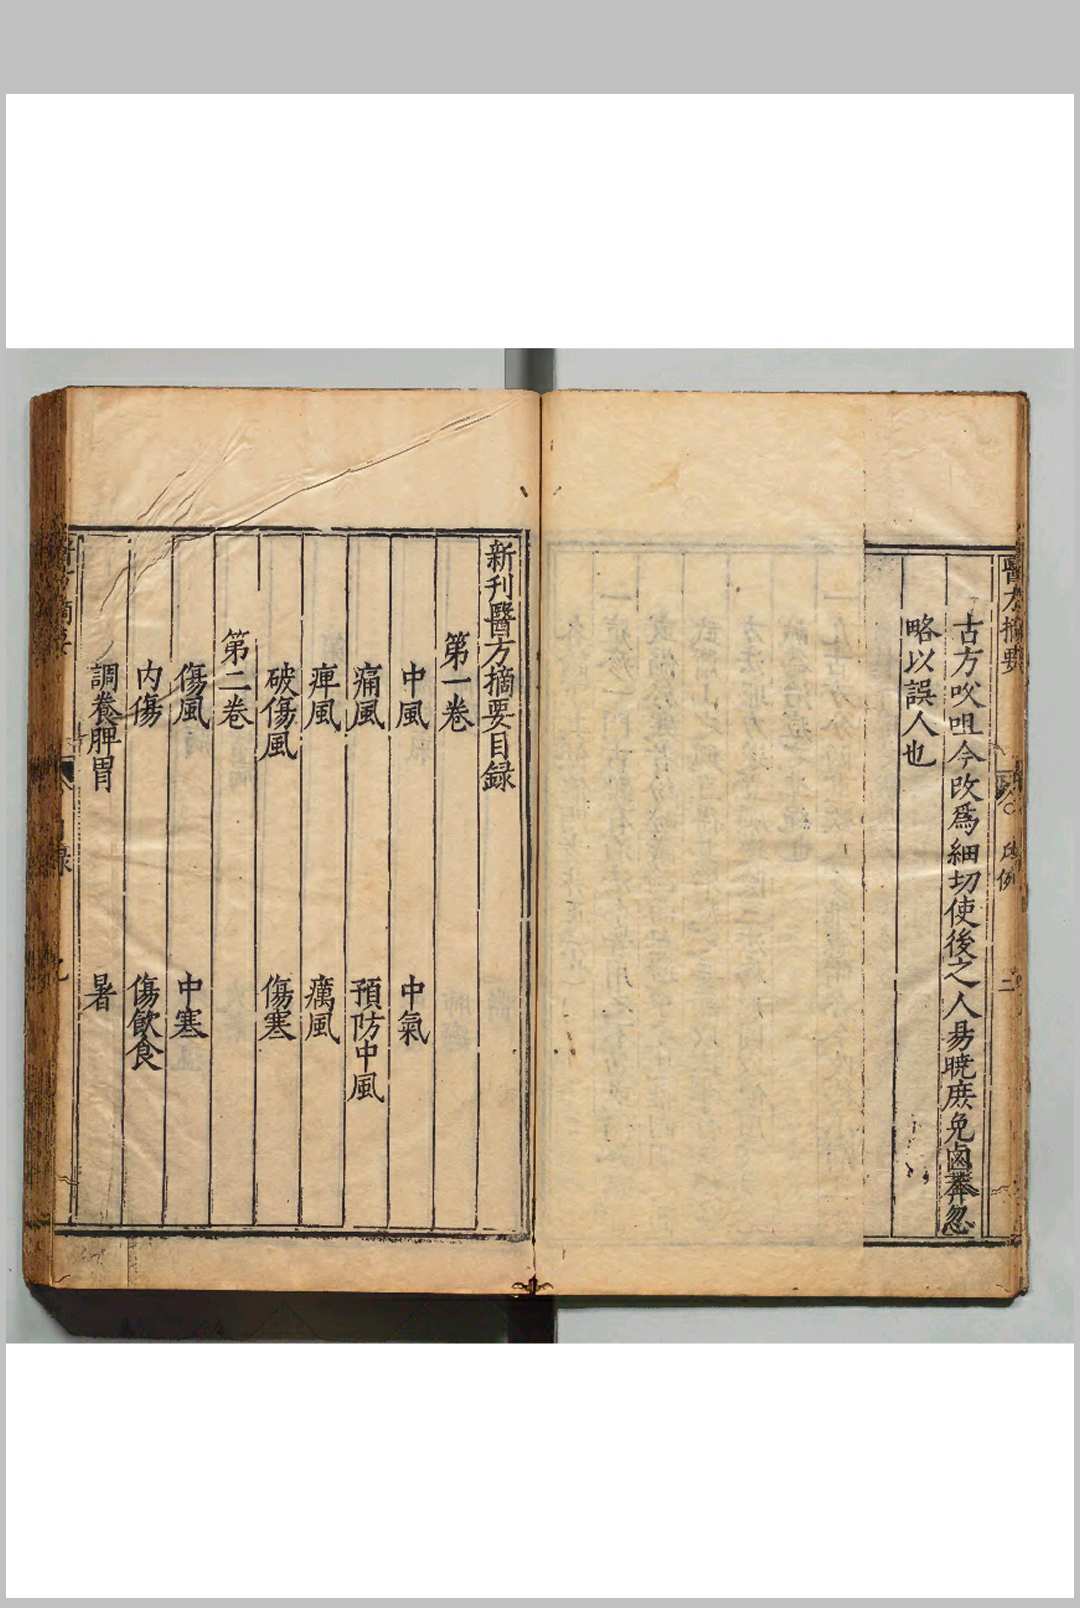 醫方摘要
凡例
二
古方㕮咀今改爲細切使後之人易曉庶免鹵莽忽
略以誤人也
新刊醫方摘要目録
第一卷
中風 中氣
痛風 預防中風
痺風 癘風
破傷風 傷寒
第二卷
傷風 中寒
内傷 傷飲食
調養脾胃 暑